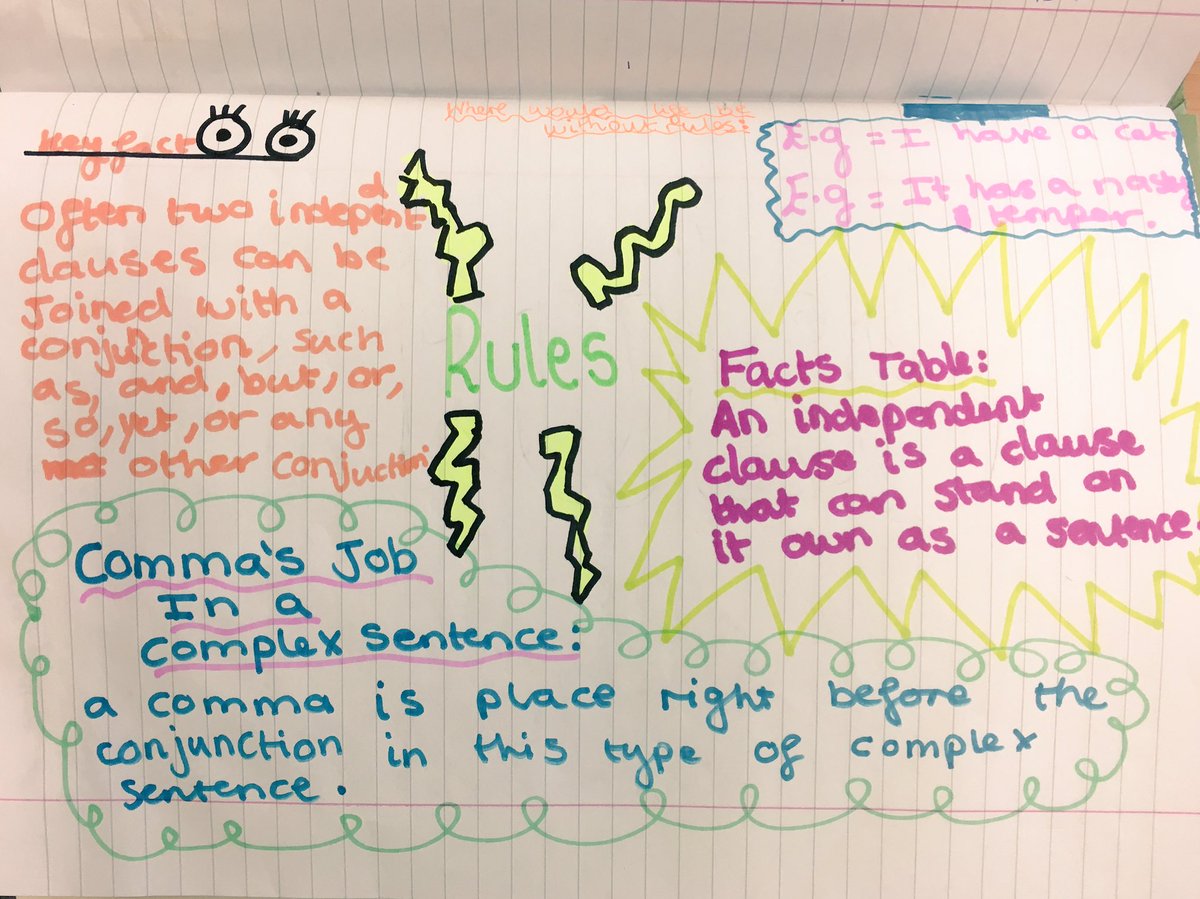 Where would life be
without rules:
Key fact
Often two indepedent
clauses can be
Joined with a
conjuction, such
as, and, but, or,
so, yet, or any
other conjuction
Rules
E.g = I have a cat.
E.g = It has a nasty
temper.
Facts Table:
An independent
clause is a clause
that can stand on
it own as a sentence.
Comma's Job
In a
complex sentence:
a comma is place right before the
conjunction in this type of complex
sentence.